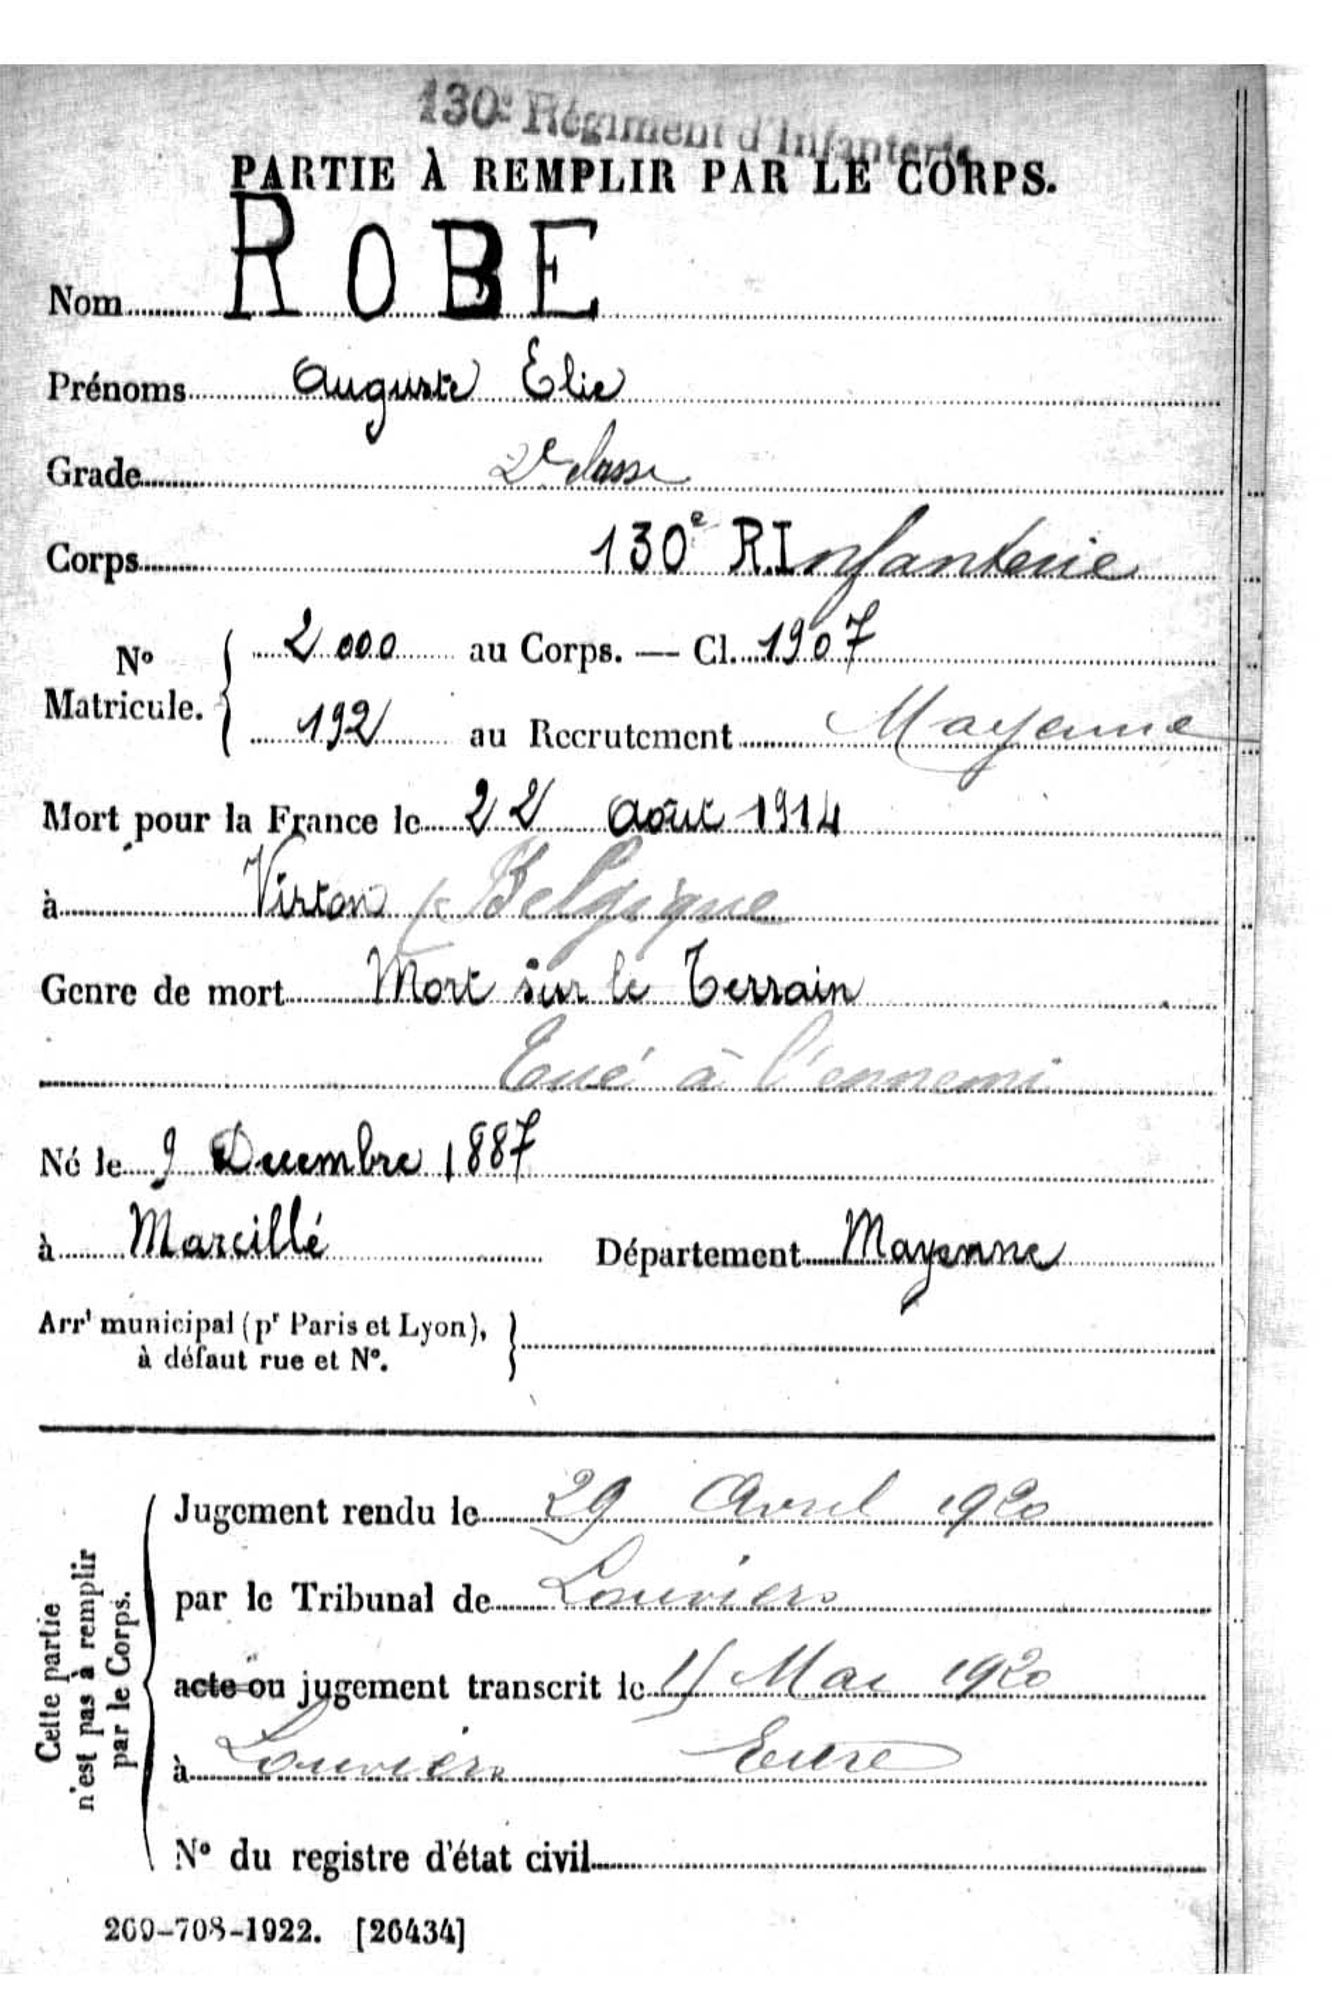 130e Régiment d'Infanterie
PARTIE À REMPLIR PAR LE CORPS.
Nom ROBE
Prénoms Auguste Elie
Grade 2e classe
Corps 130e R.Infanterie
No Matricule. { 2000 au Corps. — Cl. 1907
192 au Recrutement Mayenne
Mort pour la France le 22 août 1914
à Virton (Belgique
Genre de mort Mort sur le Terrain
Tué à l'ennemi
Né le 9 Decembre 1887
à Marcillé Département Mayenne
Arrt municipal (pr Paris et Lyon),
à défaut rue et No.
Cette partie
n'est pas à remplir
par le Corps.
Jugement rendu le 29 Avril 1920
par le Tribunal de Louviers
acte ou jugement transcrit le Mai 1920
à Louviers Eure
No du registre d'état civil
269-708-1922. [26434]